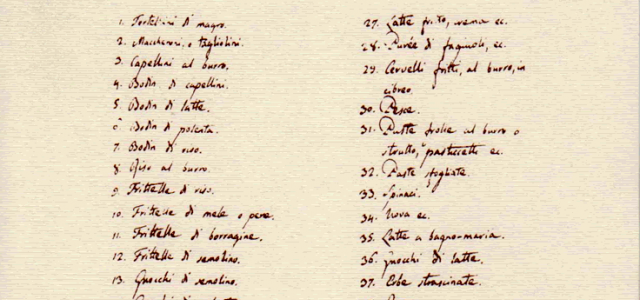 1. Tortellini di magro.
2. Maccheroni, o tagliolini.
3. Capellini al burro.
4. Bodin di capellini.
5. Bodin di latte.
6 Bodin di polenta.
7. Bodin di riso.
8. Riso al burro.
9. Frittelle di riso.
10. Frittelle di mele o pere.
11. Frittelle di borragine.
12. Frittelle di semolino.
13. Gnocchi di semolino.
27. Latte fritto, crema ec.
28. Purée di fagiuoli, ec.
29. Cervelli fritti, al burro, in
cibreo.
30. Pesce.
31. Paste frolle al burro o
strutto, pasticcetti ec.
32. Paste sfogliate.
33. Spinaci.
34. Uova ec.
35. Latte a bagno-maria.
36. Gnocchi di latte.
37. Erbe strascinate.